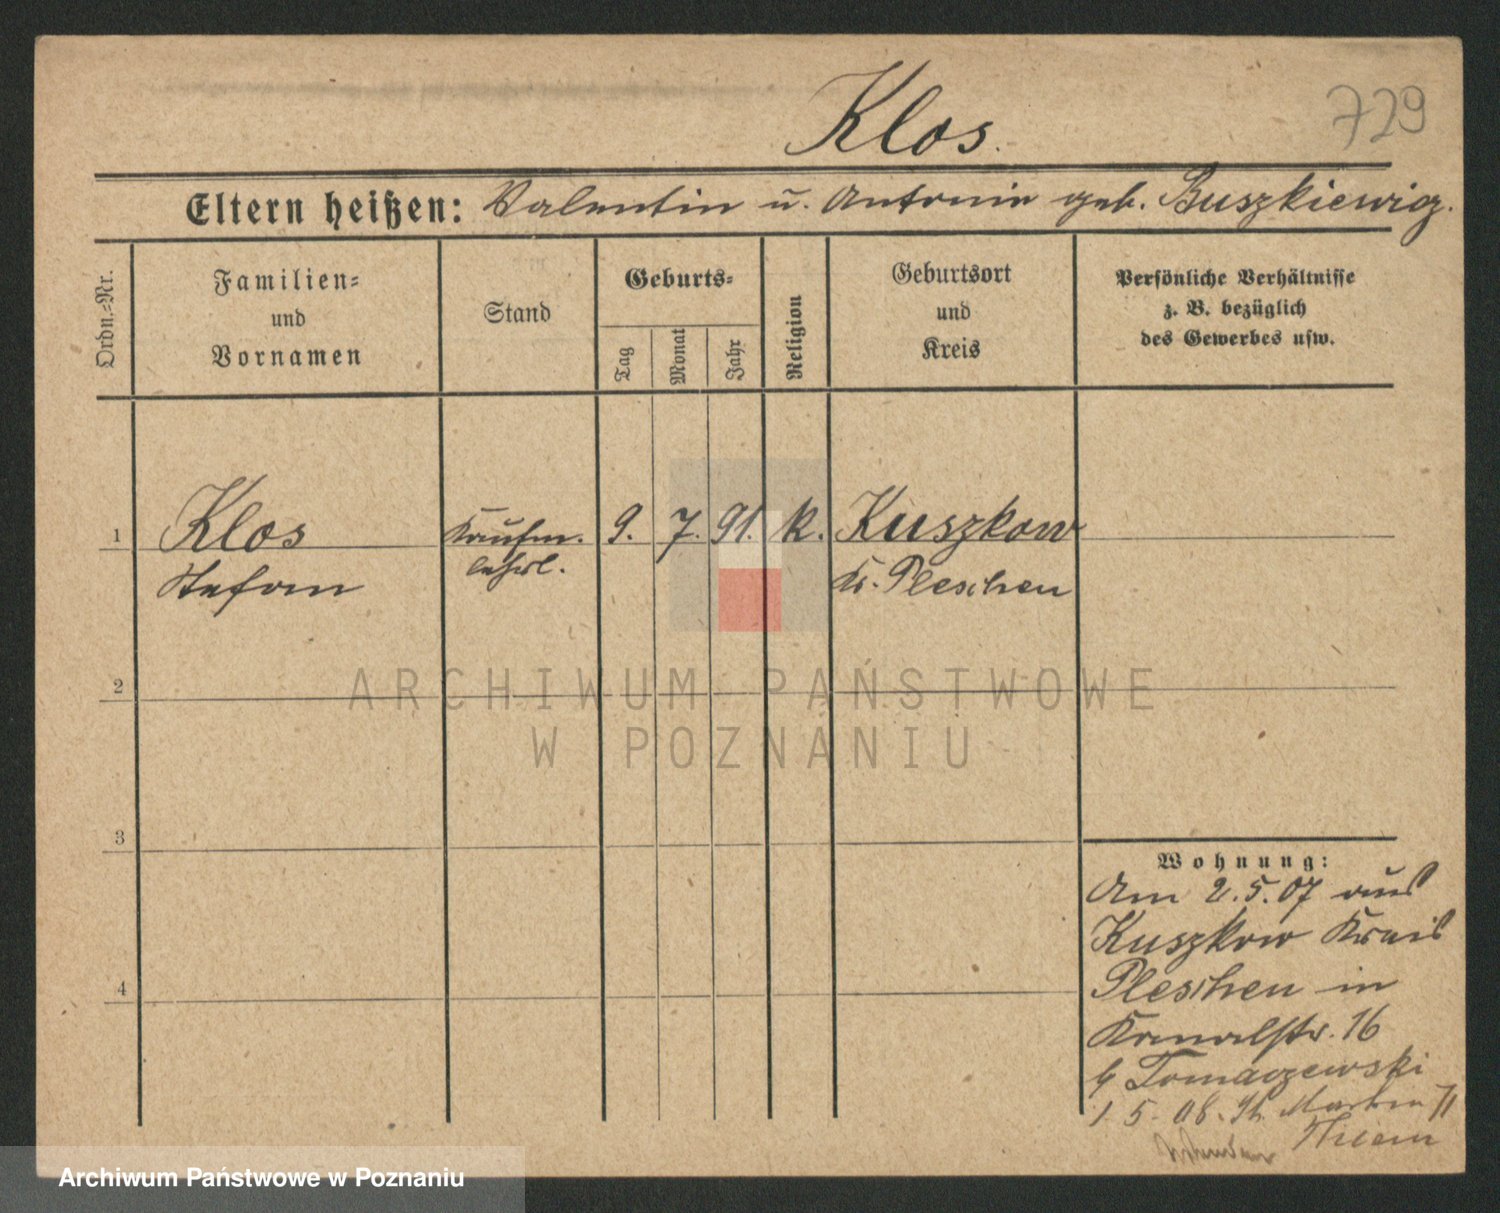 Klos.
729
Eltern heißen: Valentin u. Antonie geb. Buszkiewicz.
Ordn.-Nr.
Familien-
und
Vornamen
Stand
Geburts-
Tag
Monat
Jahr
Religion
Geburtsort
und
Kreis
Persönliche Verhältnisse
z. B. bezüglich
des Gewerbes usw.
1 Klos Kaufm. 9. 7. 91. k. Kuszkow
Stefan lehrl. Kr. Pleschen
2
ARCHIWUM PAŃSTWOWE
W POZNANIU
3
4
Wohnung:
Am 2.5.07 aus
Kuszkow Kreis
Pleschen in
Kanalstr. 16
b Tomaczewski
1.5.08. St. Martin 71
Archiwum Państwowe w Poznaniu